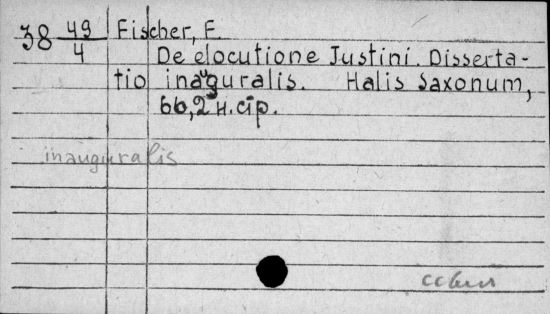 38 49/4 Fischer, F.
De elocutione Justini. Disserta-
tio inauguralis. Halis Saxonum,
66,2 н. стр.
inauguralis